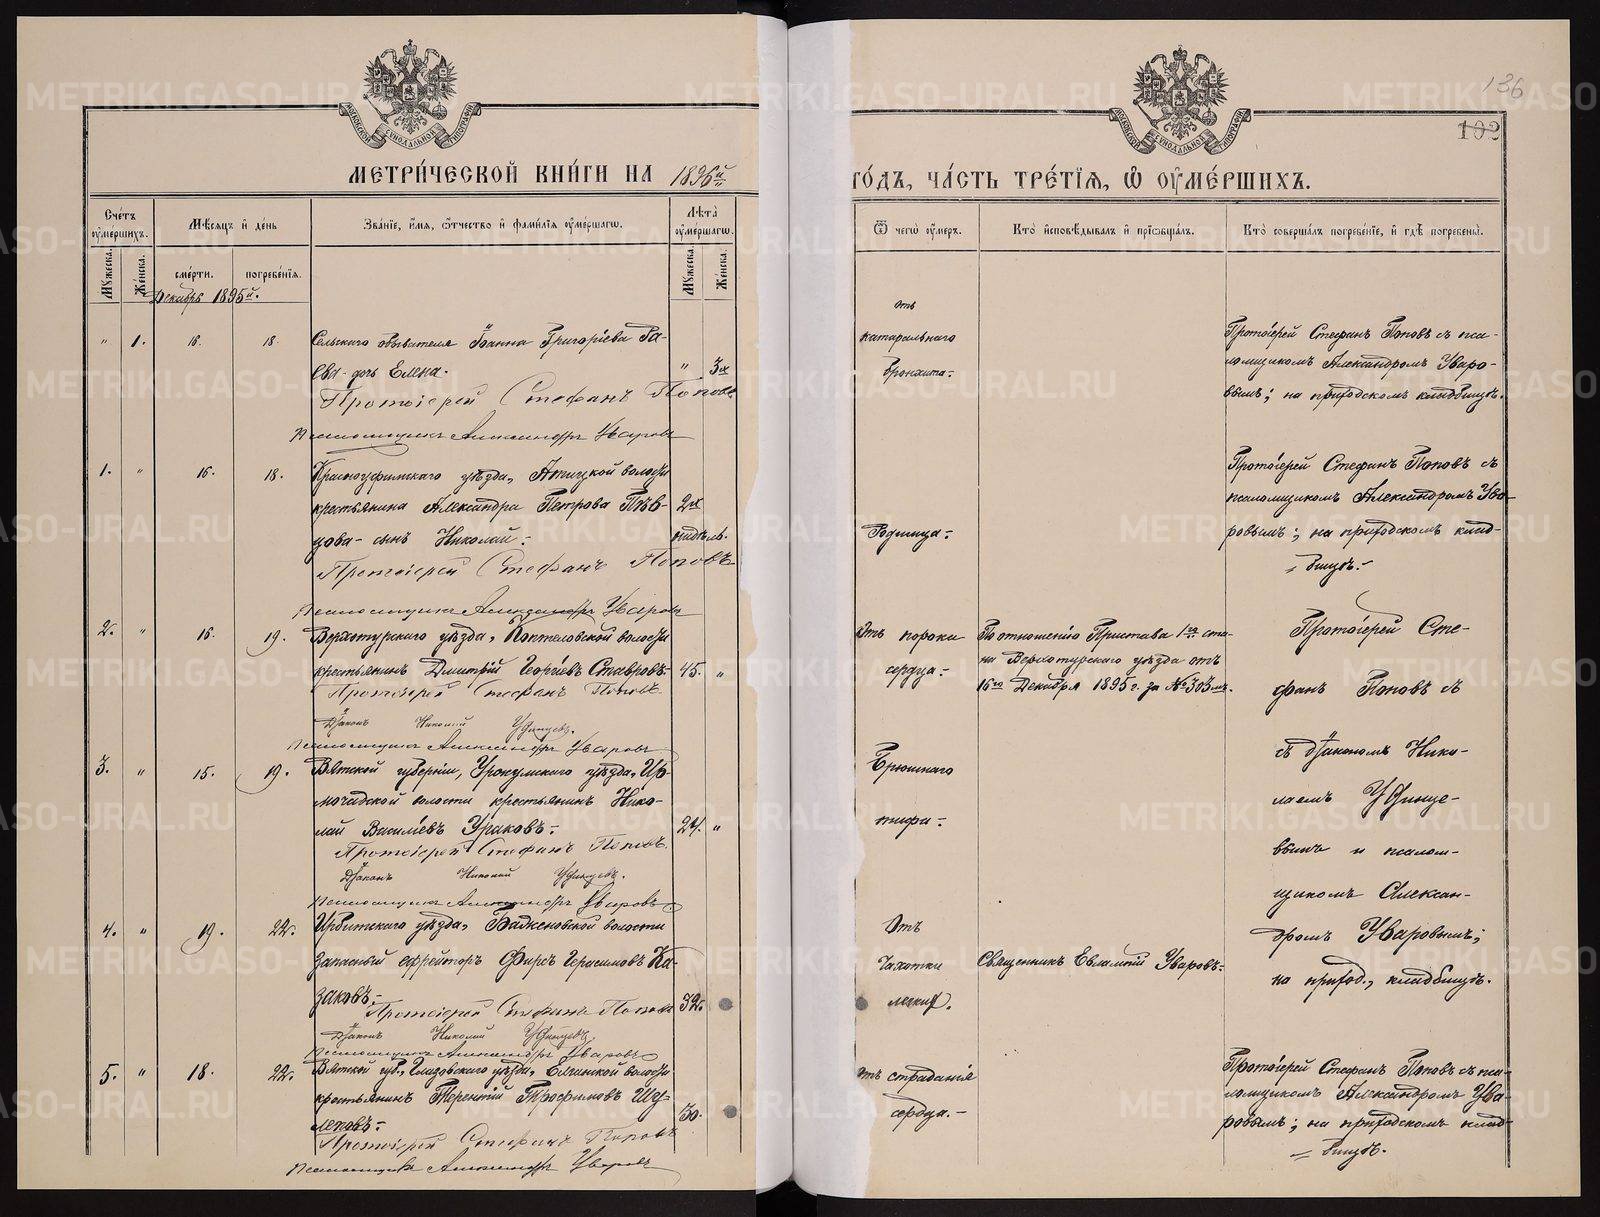 136
103
МЕТРИ́ЧЕСКОЙ КНИ́ГИ НА 1896й
ГО́ДЪ, ЧА́СТЬ ТРЕ́ТІѦ, Ѽ ОУМЕ́РШИХЪ.
Сче́тъ оуме́ршихъ.
Мꙋжеска.
Же́нска.
Мѣ́сѧцъ и҆ де́нь
сме́рти.
погребе́нїѧ.
Зва́нїе, и҆́мѧ, ѻ҆́тчество и҆ фами́лїѧ оуме́ршагѡ.
Лѣ́та оуме́ршагѡ.
Мꙋжеска.
Же́нска.
Ѿ чегѡ̀ оу҆́меръ.
Кто̀ и҆сповѣ́дывалъ и҆ прїѡбща́лъ.
Кто̀ соверша́лъ погребе́нїе, и҆ гдѣ̀ погребены̀.
Декабрь 1895й.
" 1. 16. 18.
Сельскаго обывателя Іоанна Григоріева
ева дочь Елена.
" 3
Протоіерей Стефанъ Поповъ
Псаломщикъ Александръ Уваровъ
отъ
катаральнаго
бронхита.
Протоіерей Стефанъ Поповъ съ пса-
ломщикомъ Александромъ Уваро-
вымъ; на приходскомъ кладбищѣ.
1. " 16. 18.
Красноуфимскаго уѣзда, Ачитской волости
крестьянина Александра Петрова
сынъ Николай.
2
недѣль.
Протоіерей Стефанъ Поповъ
Псаломщикъ Александръ Уваровъ
Родимца.
Протоіерей Стефанъ Поповъ съ
псаломщикомъ Александромъ Ува-
ровымъ; на приходскомъ клад-
бищѣ.
2. " 16. 19.
Верхотурскаго уѣзда, Коптеловской волости
крестьянинъ Димитрій Георгіевъ Ставровъ
45. "
Протоіерей Стефанъ Поповъ
Діаконъ Николай Удинцевъ.
Псаломщикъ Александръ Уваровъ
Отъ порока
сердца.
По отношенію Пристава 1го ста-
на Верхотурскаго уѣзда отъ
16го Декабря 1895 г. за № 303мъ.
Протоіерей Сте-
фанъ Поповъ съ
съ діакономъ Нико-
лаемъ Удинце-
вымъ и псалом-
щикомъ Алексан-
дромъ Уваровымъ;
на приход., кладбищѣ.
3. " 15. 19.
Вятской губерніи, Уржумскаго уѣзда,
волости крестьянинъ Нико-
лай Васильевъ Ураковъ.
24. "
Протоіерей Стефанъ Поповъ
Діаконъ Николай Удинцевъ.
Псаломщикъ Александръ Уваровъ
Брюшнаго
тифа.
4. " 19. 22.
Ирбитскаго уѣзда, Баженовской волости
запасный ефрейторъ Фирсъ Герасимовъ Ка-
заковъ.
32.
Протоіерей Стефанъ Поповъ
Діаконъ Николай Удинцевъ
Псаломщикъ Александръ Уваровъ
Отъ
чахотки
легкихъ.
Священникъ Евлампій Уваровъ.
5. " 18. 22.
Вятской губ., Глазовскаго уѣзда, Елганской волости
крестьянинъ Терентій Трофимовъ Шу-
леповъ.
30.
Протоіерей Стефанъ Поповъ
Псаломщикъ Александръ Уваровъ
Отъ страданія
сердца.
Протоіерей Стефанъ Поповъ съ пса-
ломщикомъ Александромъ Ува-
ровымъ; на приходскомъ клад-
бищѣ.
METRIKI.GASO-URAL.RU